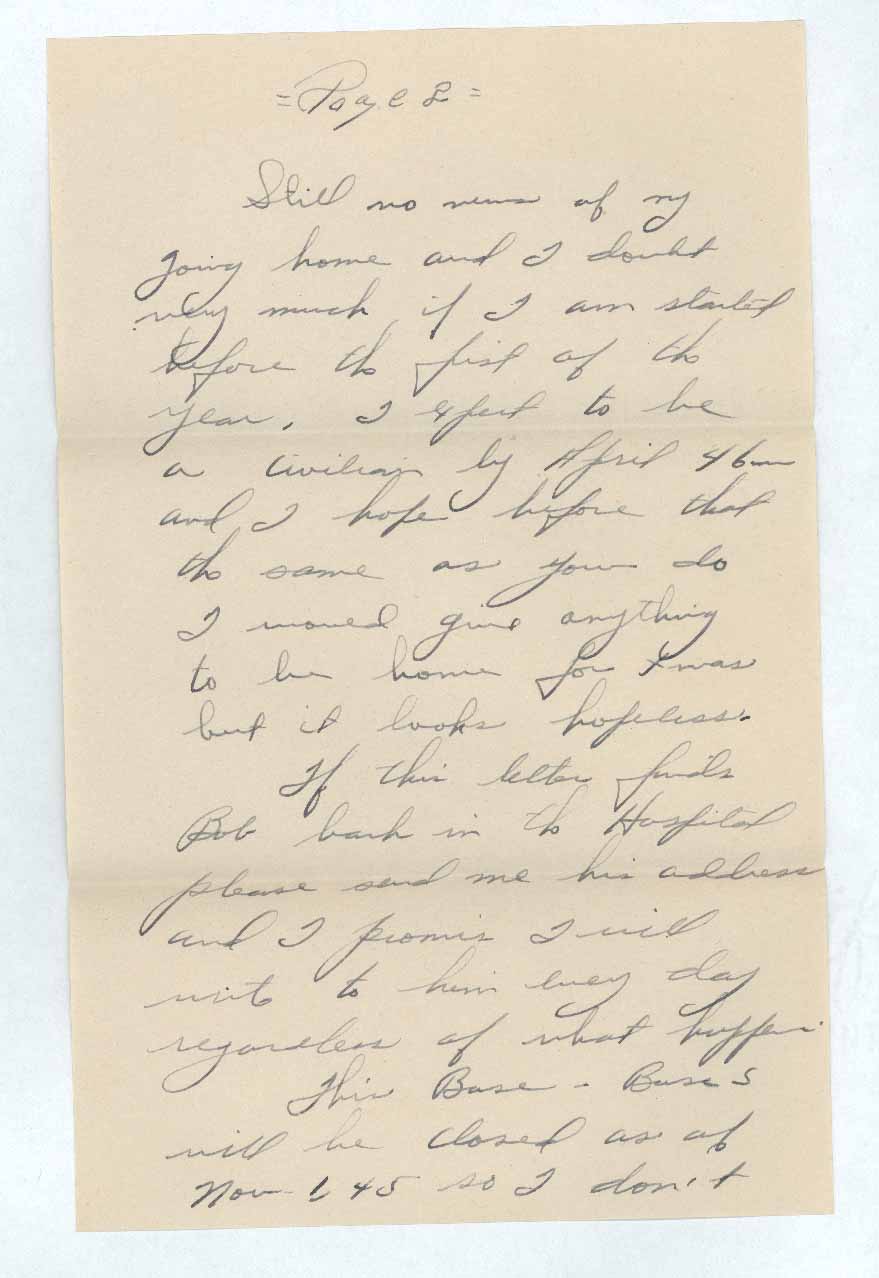 = Page 2 =
Still no news of my
going home and I doubt
very much if I am started
before the first of the
year. I expect to be
a civilian by April 46
and I hope before that
the same as you do
I would give anything
to be home for Xmas
but it looks hopeless.
If this letter finds
Bob back in the Hospital
please send me his address
and I promis I will
write to him every day
regardless of what happen
This Base - Base 5
will be closed as of
Nov 1, 45 so I don't